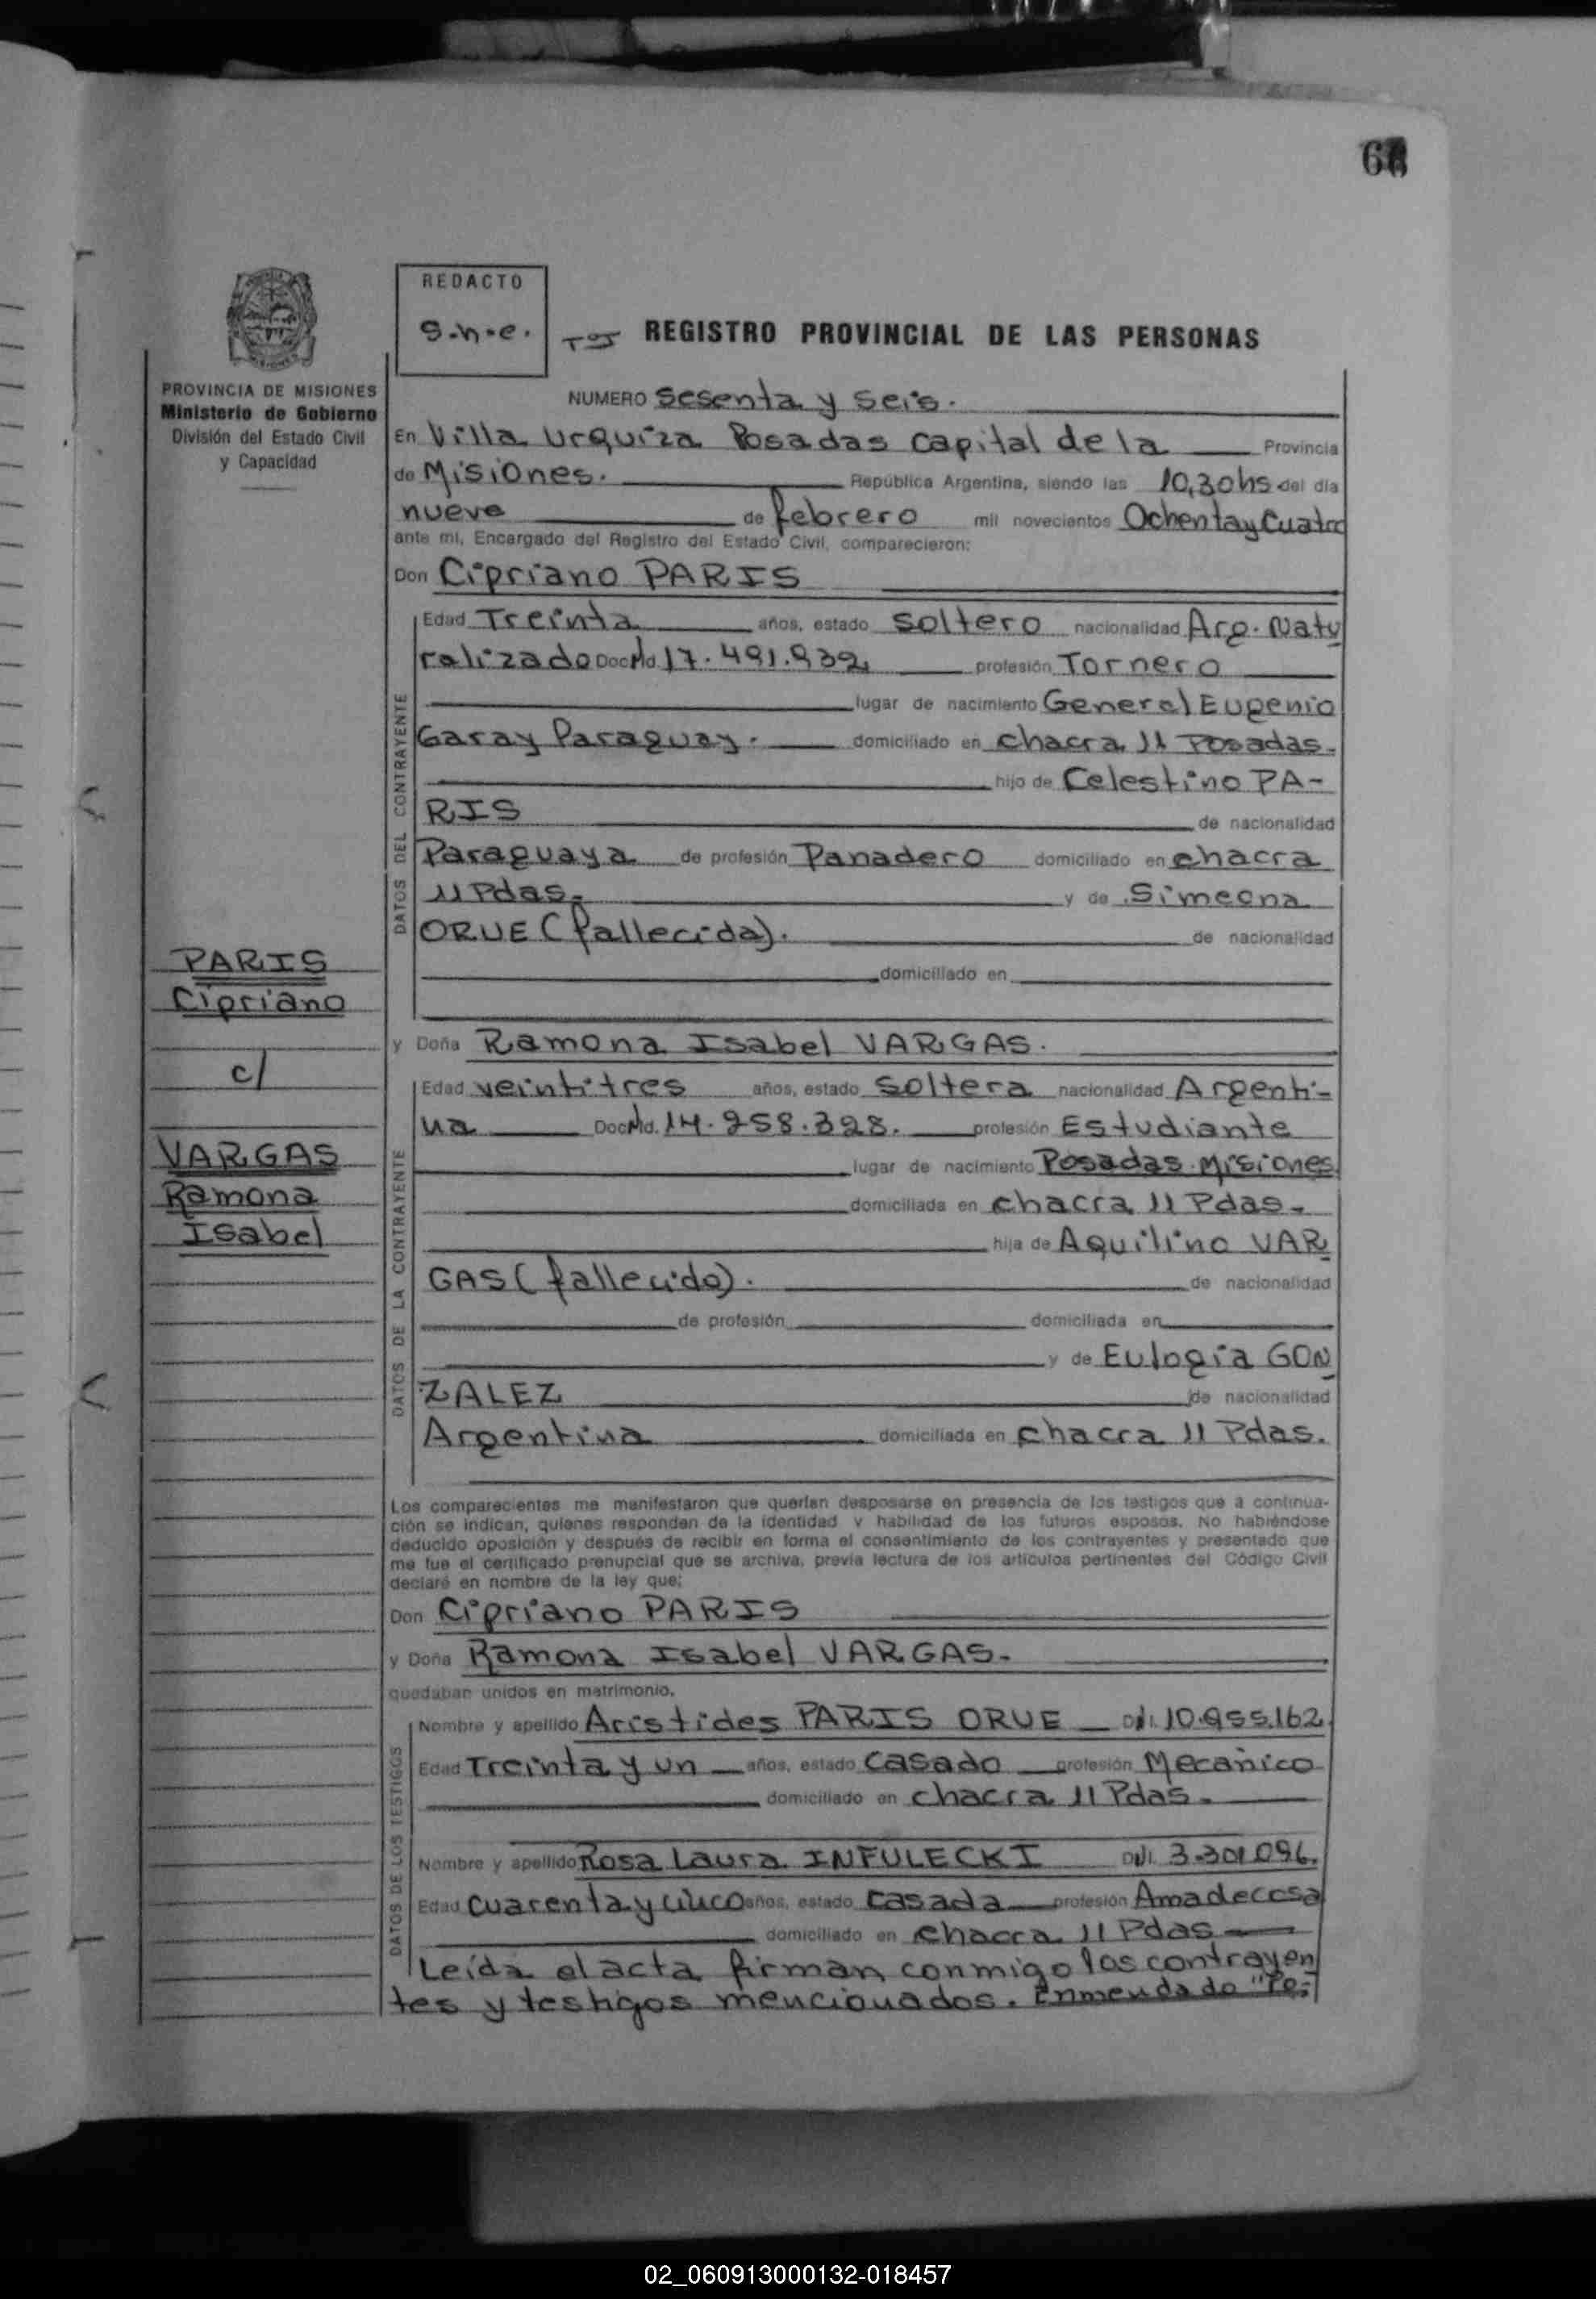 REDACTO
S.n.e.
REGISTRO PROVINCIAL DE LAS PERSONAS
PROVINCIA DE MISIONES
Ministerio de Gobierno
División del Estado Civil
y Capacidad
NUMERO Sesenta y seis.
En Villa Urquiza Posadas Capital de la Provincia
de Misiones. República Argentina, siendo las 10,30hs del día
nueve de febrero mil novecientos Ochenta y Cuatro
ante mi, Encargado del Registro del Estado Civil, comparecieron:
Don Cipriano PARIS
Edad Treinta años, estado Soltero nacionalidad Arg. Natu
ralizado Doc. Nd. 17.491.939, profesión Tornero
lugar de nacimiento General Eugenio
Garay Paraguay. domiciliado en chacra 11 Posadas-
hijo de Celestino PA-
RIS de nacionalidad
Paraguaya de profesión Panadero domiciliado en chacra
11 Pdas- y de Simeona
ORUE (fallecida). de nacionalidad
domiciliado en
y Doña Ramona Isabel VARGAS.
Edad veintitres años, estado Soltera nacionalidad Argenti-
na Doc. Nd. 14.258.328. profesión Estudiante
lugar de nacimiento Posadas-Misiones
domiciliada en chacra 11 Pdas-
hija de Aquilino VAR
GAS (fallecido). de nacionalidad
de profesión domiciliada en
y de Eulogia GON
ZALEZ de nacionalidad
Argentina domiciliada en chacra 11 Pdas.
DATOS DEL CONTRAYENTE
DATOS DE LA CONTRAYENTE
PARIS
Cipriano
c/
VARGAS
Ramona
Isabel
Los comparecientes me manifestaron que querían desposarse en presencia de los testigos que a continua-
ción se indican, quienes responden de la identidad y habilidad de los futuros esposos. No habiéndose
deducido oposición y después de recibir en forma el consentimiento de los contrayentes y presentado que
me fue el certificado prenupcial que se archiva, previa lectura de los artículos pertinentes del Código Civil
declaré en nombre de la ley que:
Don Cipriano PARIS
y Doña Ramona Isabel VARGAS-
quedaban unidos en matrimonio.
Nombre y apellido Aristides PARIS ORUE 10.955.162
Edad Treinta y un años, estado casado profesión Mecánico
domiciliado en chacra 11 Pdas-
Nombre y apellido Rosa Laura INFULECKI 3.301.096.
Edad cuarenta y cinco años, estado casada profesión Amadecasa
domiciliado en chacra 11 Pdas
DATOS DE LOS TESTIGOS
Leída el acta firman conmigo los contrayen
tes y testigos mencionados. Enmendado "Pe-
02_060913000132-018457